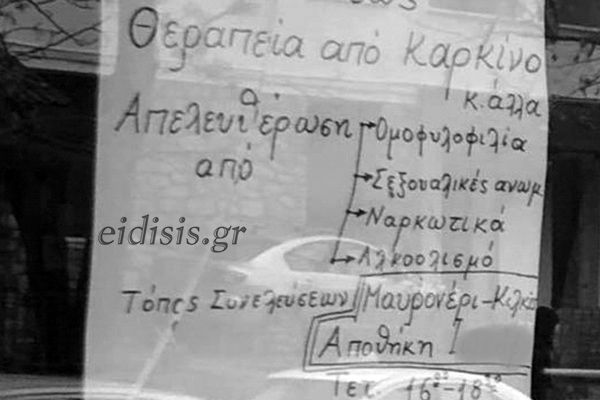 Θεραπεία από Καρκίνο
κ. άλλα
Απελευθέρωση
από
Ομοφυλοφιλία
Σεξουαλικές ανωμ
Ναρκωτικά
Αλκοολισμό
eidisis.gr
Τόπος Συνελεύσεων Μαυρονέρι-Κιλκίς
Αποθήκη
Τετ. 16⁰⁰-18